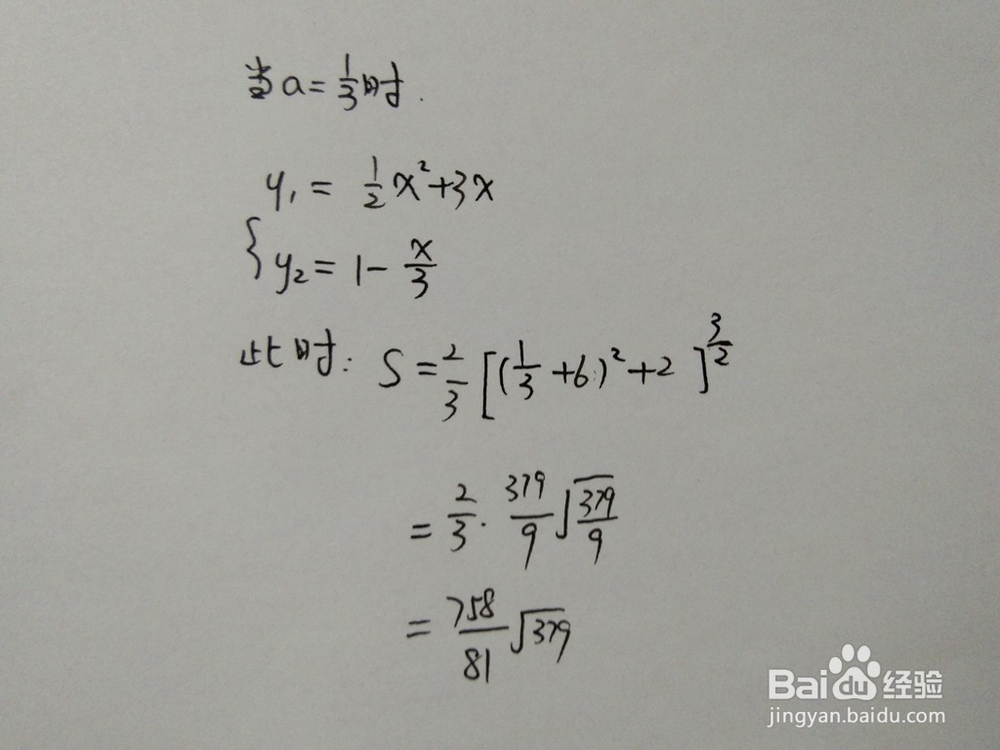 当a=1/3时.
y₁ = 1/2 x²+3x
{ y₂ = 1 - x/3
此时: S = 2/3 [(1/3 +6)²+2]^(3/2)
= 2/3 · 379/9 √(379/9)
= 758/81 √379
Baidu经验
jingyan.baidu.com